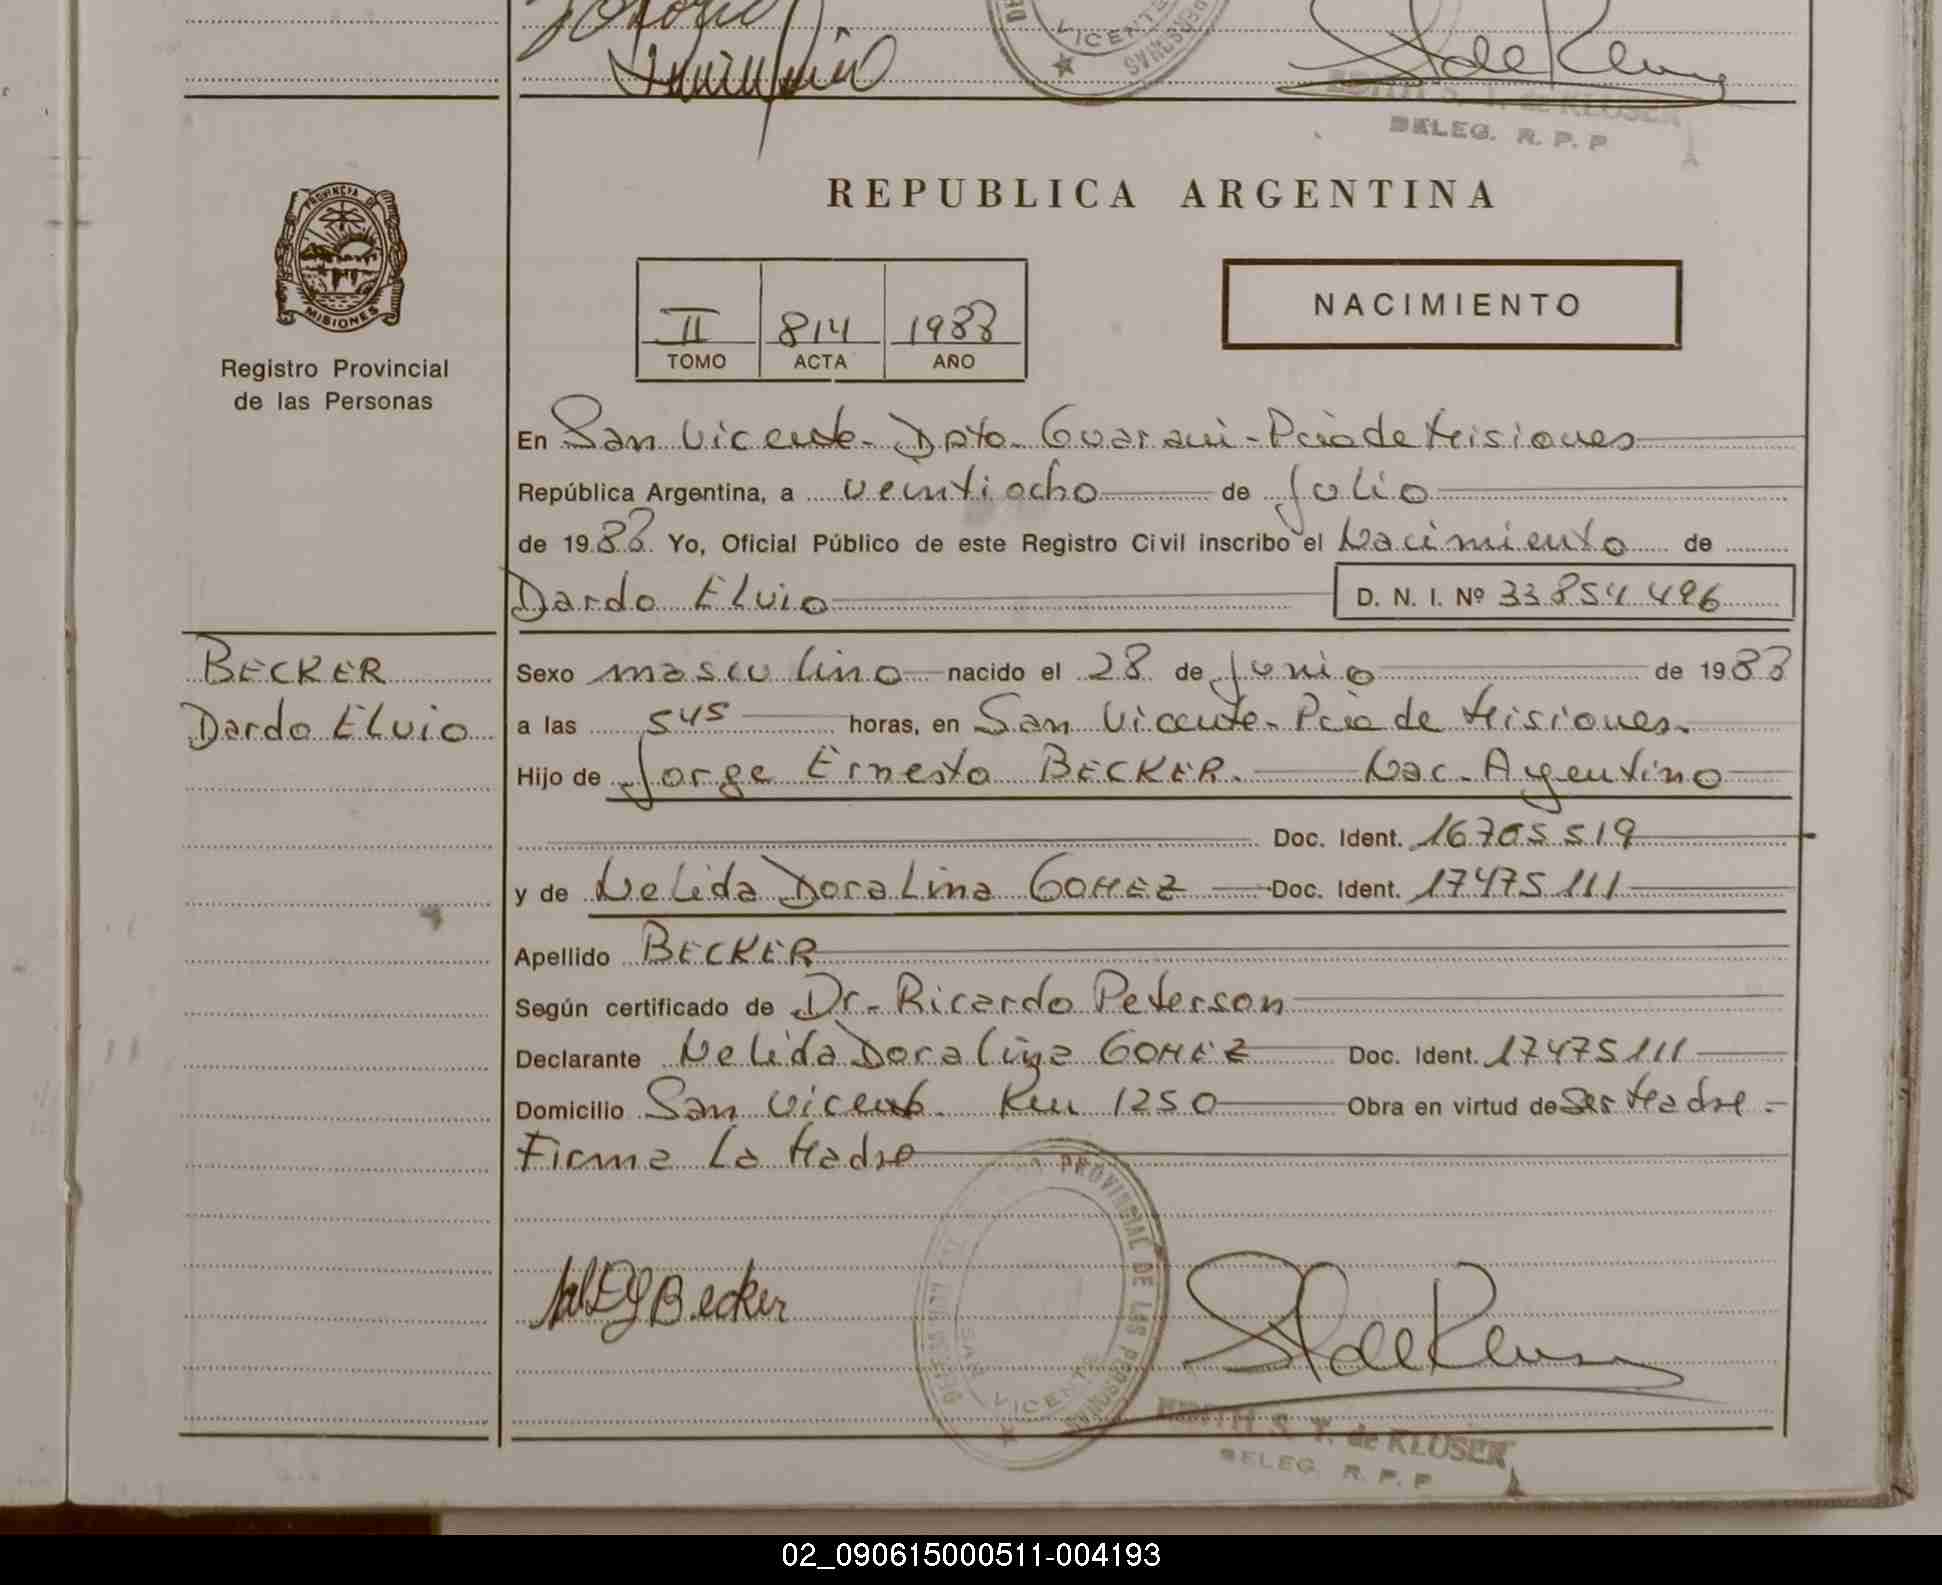 VICENTE
PERSONAS
EDITH S. T. de KLUSER
DELEG. R. P. P
PROVINCIA DE
MISIONES
REPUBLICA ARGENTINA
Registro Provincial
de las Personas
II 814 1988
TOMO ACTA AÑO
NACIMIENTO
En San Vicente - Dpto. Guaraní - Pcia de Misiones
República Argentina, a veintiocho de Julio
de 1988 Yo, Oficial Público de este Registro Civil inscribo el Nacimiento de
Dardo Elvio D. N. I. Nº 33854496
BECKER
Dardo Elvio
Sexo masculino nacido el 28 de Junio de 1988
a las 545 horas, en San Vicente - Pcia de Misiones.
Hijo de Jorge Ernesto BECKER. Nac. Argentino
Doc. Ident. 16705519
y de Nelida Doralina GOMEZ Doc. Ident. 17475111
Apellido BECKER
Según certificado de Dr. Ricardo Peterson
Declarante Nelida Doralina GOMEZ Doc. Ident. 17475111
Domicilio San Vicente. Km 1250 Obra en virtud de Ser Madre -
Firma La Madre
Becker
PROVINCIAL DE LAS PERSONAS
SAN VICENTE
EDITH S. T. de KLUSER
DELEG. R. P. P
02_090615000511-004193